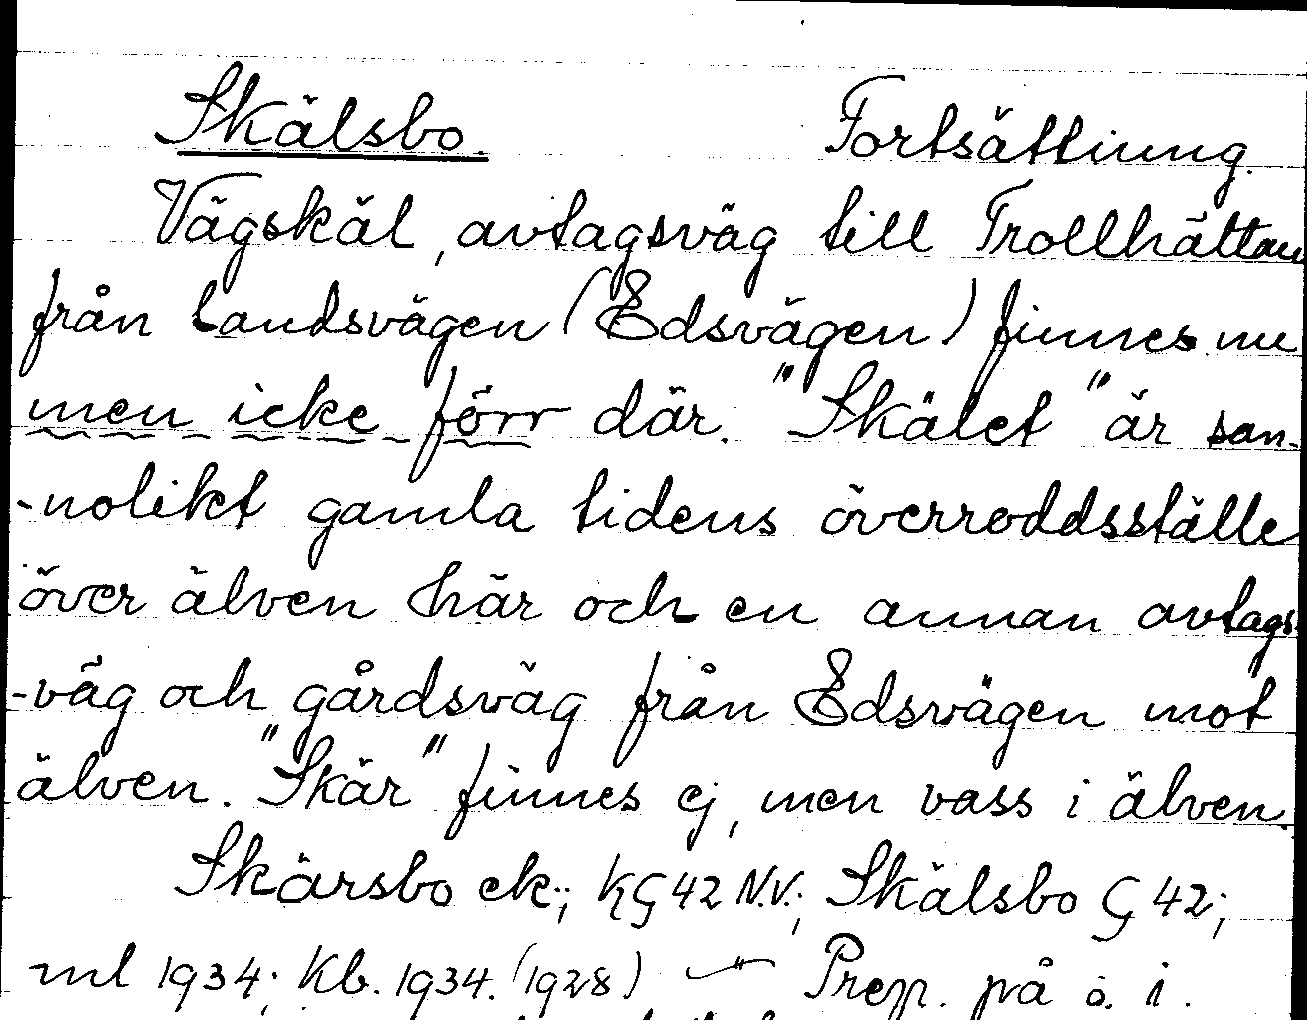 Skälsbo. Fortsättning.
Vägskäl, avtagsväg till Trollhättan
från landsvägen (Edsvägen) finnes nu
men icke förr där. "Skälet" är san-
-nolikt gamla tidens överroddsställe
över älven här och en annan avtags-
-väg och gårdsväg från Edsvägen mot
älven. "Skär" finnes ej, men vass i älven.
Skärsbo ek.; KG 42 N.V.; Skälsbo G 42;
ml 1934; Kb. 1934. (1928) —"— Prep. på ö. i.